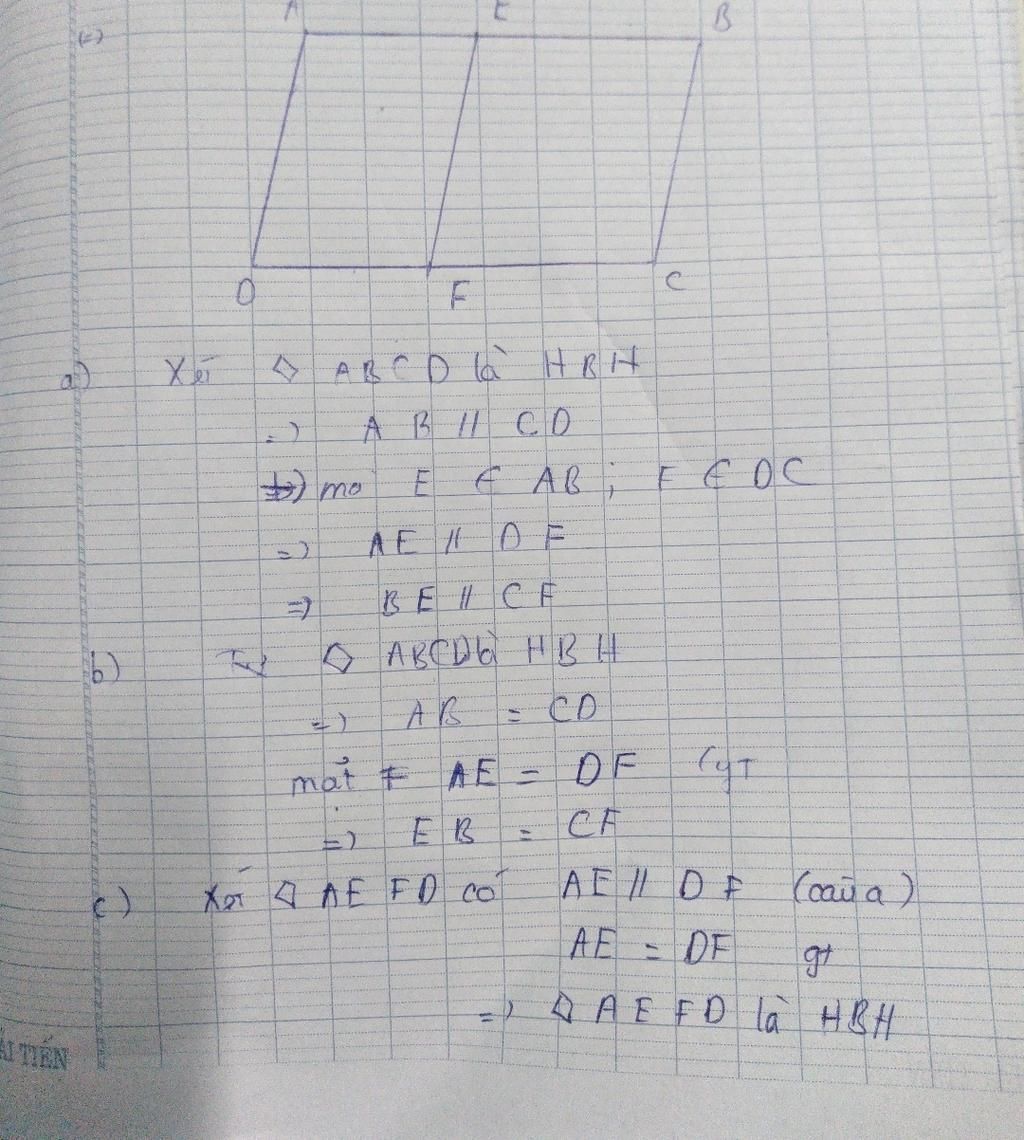 A E B
D F C
a) Xét ◇ ABCD là HBH
=> AB // CD
mà E ∈ AB ; F ∈ DC
=> AE // DF
=> BE // CF
b) ◇ ABCD là HBH
=> AB = CD
mặt ≠ AE = DF (gT
=> EB = CF
c) Xét ◇ AEFD có AE // DF (câu a)
AE = DF gt
=> ◇ AEFD là HBH
ẢI TIẾN